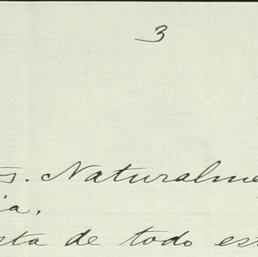 3
s. Naturalme
ia.
sta de todo est